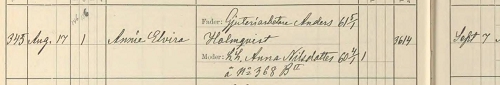 Fader: Gjuteriarbetare Anders 61 5/1
345 Aug. 17 1 Annie Elvira Holmqvist 3614 Sept 7
Moder: h.h. Anna Nilsdotter 60 4/5 1
â No 368 B II